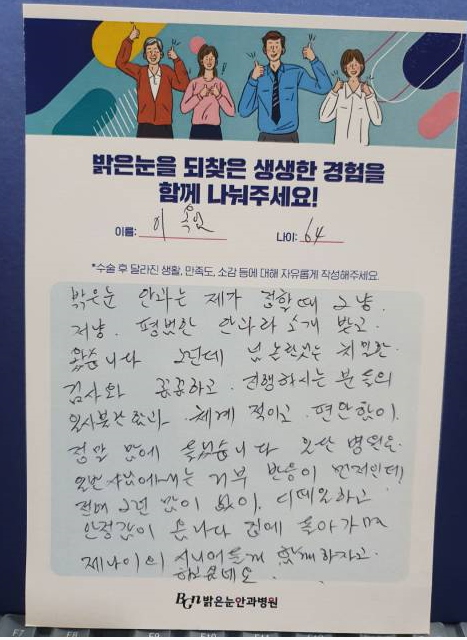 밝은눈을 되찾은 생생한 경험을
함께 나눠주세요!
이름: 이
나이: 64
*수술 후 달라진 생활, 만족도, 소감 등에 대해 자유롭게 작성해주세요.
밝은눈 안과는 제가 접할때 그냥.
저냥. 평범한 안과라 소개 받고.
왔습니다 그런데 넘 놀란것은 치밀한.
검사와 꼼꼼하고. 진행하시는 분들의
일사불란함과 체계 적이고. 편안함이.
정말 맘에 들었습니다 일단 병원은.
일반사람에게는 거부 반응이 먼저인데!
전혀 그런 맘이 없이. 디테일하고
안정감이 온다나 집에 돌아가면
제나이의 시니어들께 함께하자고.
하고싶네요.
BGN 밝은눈안과병원
F7 F8 F9 F10 F11 F12